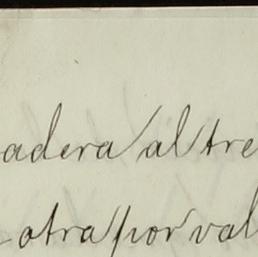 adera al tre
otra por val